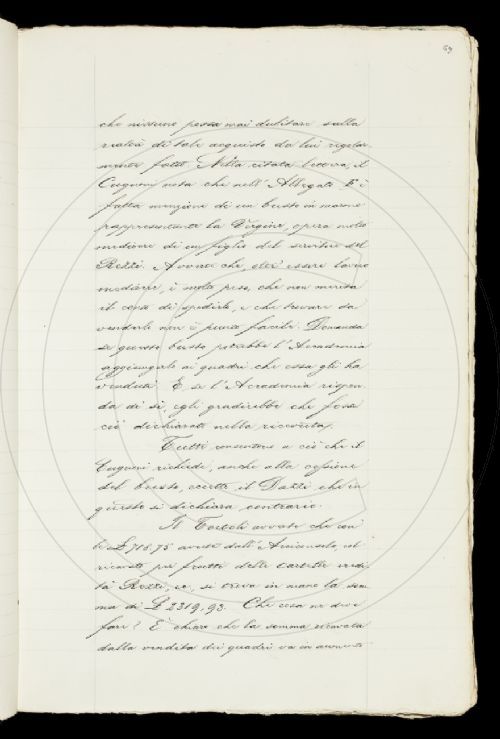 69
che nissuno possa mai dubitare sulla
realtà di tale acquisto da lui regolar
mente fatto. Nella citata lettera, il
Cugnoni nota che nell'Allegato B è
fatta menzione di un busto in marmo
rappresentante la Vergine, opera molto
mediocre di un figlio del servitore del
Rezzi. Avverte che, oltre essere lavoro
mediocre, è molto peso, che non merita
il conto di spedirlo, e che trovare da
venderlo non è punto facile. Domanda
se questo busto potrebbe l'Accademia
aggiungerlo ai quadri che essa gli ha
venduti. E se l'Accademia rispon
da di sì, egli gradirebbe che fosse
ciò dichiarato nella ricevuta.
Tutti consentono a ciò che il
Cugnoni richiede, anche alla cessione
del busto, eccetto il Dazzi, che in
questo si dichiara contrario.
Il Tortoli avverte che con
le £ 716,75 avute dall' col
ricavato pei frutti delle cartelle eredi
tà Rezzi, ec, si trova in mano la som
ma di £ 2319,93. Che cosa ne deve
fare? È chiaro che la somma ricavata
dalla vendita dei quadri va in aumento